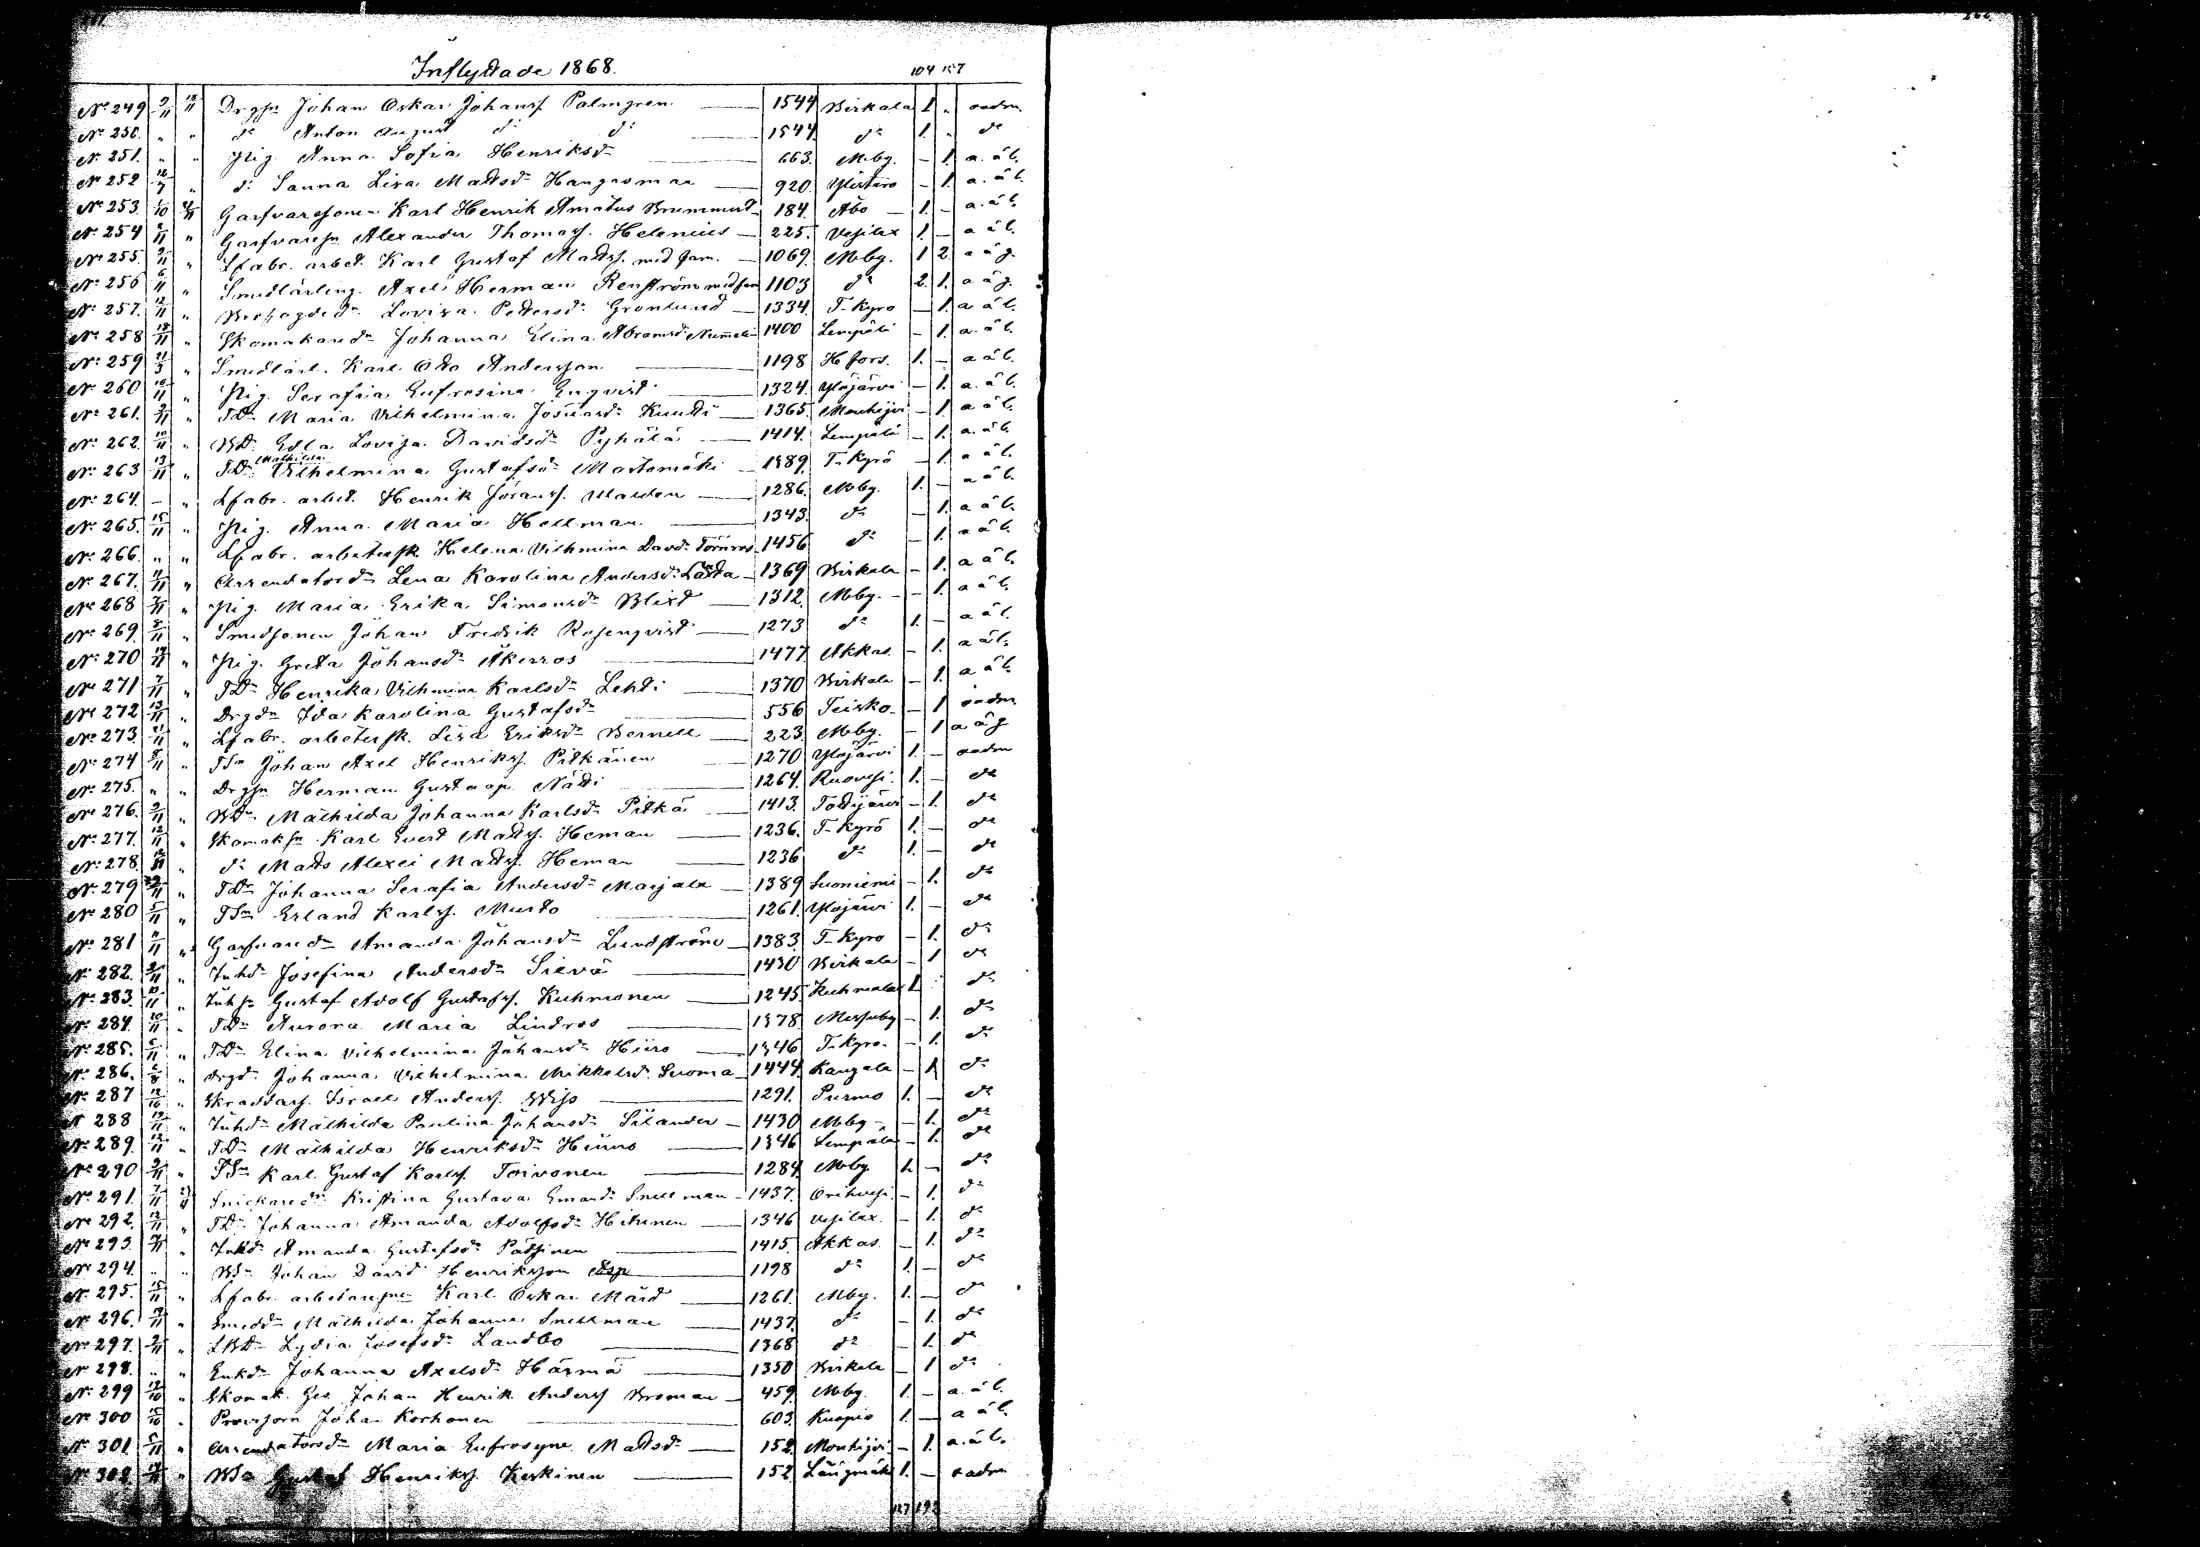 Inflyttade 1868.
104 157
No 249 9/11 12/11 Drgsn Johan Oskar Johanss. Palmgren — 1544 Birkala 1. " oadm.
No 250. " " do Anton August do do — 1544. do 1. " do
No 251. " " Pig. Anna Sofia Henriksdr — 663. Mby. – 1. a. ä l.
No 252 12/7 " do Sanna Lisa Mattsdr Hangasmaa — 920. Ylistaro – 1. a. ä l.
No 253. 1/10 Garfvaresonen Karl Henrik Amatus Brummert – 184. Åbo – 1. – a. ä l.
No 254 2/11 " Garfvaresn Alexander Thomass. Helenius – 225. Vesilax 1. – a ä l.
No 255. 2/11 " Lfabr. arbet. Karl Gustaf Mattss. med fam. – 1069. Mby. 1 2. a ä g.
No 256 6/11 " Smedlärling. Axel Herman Renström med fam 1103 do 2. 1. a ä g.
No 257. 12/11 " Lovisa Pettersdr Grönlund – 1334. T-Kyro – 1. a ä l.
No 258 12/11 " Skomakaredr Johanna Elina Abramsdr Nummelin 1400 Lempälä – 1. a. ä l.
No 259 21/3 " Smedlärl. Karl Otto Andersson — 1198 Hfors. 1. – a ä l.
No 260 10/11 " Pig. Serafia Eufrosina Enqvist — 1324. Ylöjärvi – 1. a. ä l.
No 261. 9/11 " TDr Maria Vilhelmina Josuasdr Kuutti — 1365. Mouhijvi – 1. a ä l.
No 262. 10/11 " BDr Edla Lovisa Davidsdr Pyhälä — 1414. Lempälä – 1. a. ä l.
No 263 13/11 " TDr Mathilda Vilhelmina Gustafsdr Martomäki – 1389. T-Kyrö – 1. a ä l.
No 264. – " Lfabr. arbet. Henrik Göranss. Malden — 1286. Mby. 1. – a ä l.
No 265. 15/11 " Pig. Anna Maria Hellman — 1343. do – 1. a ä l.
No 266. " " Lfabr. arbetersk. Helena Vilhmina Davdr Törnros – 1456 do – 1. a ä l.
No 267. 11/11 " Arrendatordr Lena Karolina Andersdr Lätta – 1369 Birkala – 1. a ä l.
No 268 7/11 " Pig. Maria Erika Simonsdr Blixt — 1312. Mby. – 1. a ä l.
No 269. 8/11 " Smedsonen Johan Fredrik Rosenqvist — 1273 do 1. – a ä l.
No 270 14/11 " Pig. Greta Johansdr Åkerros — 1477 Akkas. – 1. a ä l.
No 271 7/11 " TDr Henrika Vilhmina Karlsdr Lehti — 1370 Birkala – 1. a ä l.
No 272 13/11 " Drgdr Ida Karolina Gustafsdr — 556 Teisko. – 1 oadm
No 273. 21/11 " Lfabr. arbetersk. Lisa Eriksdr Bernell — 223. Mby. – 1 a ä g
No 274 8/11 " TSn Johan Axel Henrikss. Pitkänen — 1270 Ylöjärvi 1. – oadm
No 275. " " Drgsn Herman Gustaap. Nätti — 1264. Ruovesi. 1. – do
No 276. 9/11 " BDr Mathilda Johanna Karlsdr Pitkä — 1413. Tottijärvi – 1. do
No 277. 12/11 " Skomaksn Karl Evert Mattss. Heman — 1236. T-Kyrö 1. – do
No 278. 12/11 " do Matts Alexei Mattss. Heman — 1236 do 1. – do
No 279 " TDr Johanna Serafia Andersdr Marjala — 1389 Suoniemi – 1. do
No 280 5/11 " TSn Erland Karlss. Musto — 1261. Ylöjärvi 1. – do
No 281 11/11 " Garfvaredr Amanda Johansdr Lundström – 1383. T-Kyro – 1. do
No 282. 9/11 " Inhdr Josefina Andersdr Sievä — 1430 Birkala – 1 do
No 283. 10/11 " Inhsn Gustaf Adolf Gustafss. Kuhmonen — 1245. Kuhmalax 1. do
No 284. 10/11 " TDr Aurora Maria Lindros — 1378. Messuby – 1. do
No 285. 6/11 " TDr Elina Vilhelmina Johansdr Hiiro — 1346 T-Kyro. – 1. do
No 286. 6/8 " Drgdr Johanna Vilhelmina Mikkelsdr Suoma – 1444. Kangala – 1. do
No 287 12/10 " Skräddars. Israel Anderss. Wijs — 1291. Purmo 1. – do
No 288 12/11 " Inhdr Mathilda Paulina Johansdr Silander – 1430 Mby – – 1. do
No 289. 12/11 " TDr Mathilda Henriksdr Hiiro — 1346 Lempälä – 1. do
No 290 9/11 " TSn Karl Gustaf Karlss. Toivonen — 1284. Mby 1. – do
No 291. 7/11 Snickaredr Kristina Gustava Emandr Snellman – 1437. Orihvesi. – 1. do
No 292. 12/11 " TDr Johanna Amanda Adolfsdr Hihnen — 1346 Vesilax. – 1. do
No 293. 7/11 " Inhdr Amanda Gustafsdr Pätsinen — 1415. Akkas. – 1. do
No 294. " " BSn Johan David Henriksson Asp — 1198 do 1. – do
No 295. 15/11 " Lfabr. arbetaresn Karl Oskar Mård — 1261. Mby. 1. – do
No 296. 14/11 " Smeddr Mathilda Johanna Snellman — 1437. do – 1. do
No 297. 2/11 " LBDr Lydia Josefsdr Landbo — 1368 do – 1. do
No 298. " " Enkdr Johanna Axelsdr Härmä — 1350 Birkala – 1 do
No 299 12/10 " Skomak. Ges. Johan Henrik Anderss Broman – 459. Mby. 1. – a. ä l.
No 300 15/10 " Provisorn Johan Korhonen — 603. Kuopio 1. – a ä l.
No 301. 5/11 " Arrendatorsdr Maria Eufrosyne Mattsdr — 152. Mouhijvi – 1. a. ä l.
No 302. " BSn Gustaf Henrikss. Keskinen — 152 Längmäk 1. – oadm
127 192